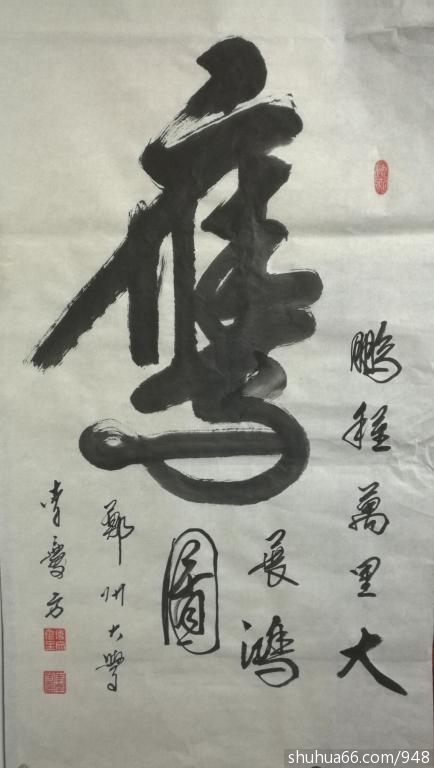 鹰
鹏程萬里大
展鴻
圖
鄭州大學
李慶方
shuhua66.com/948